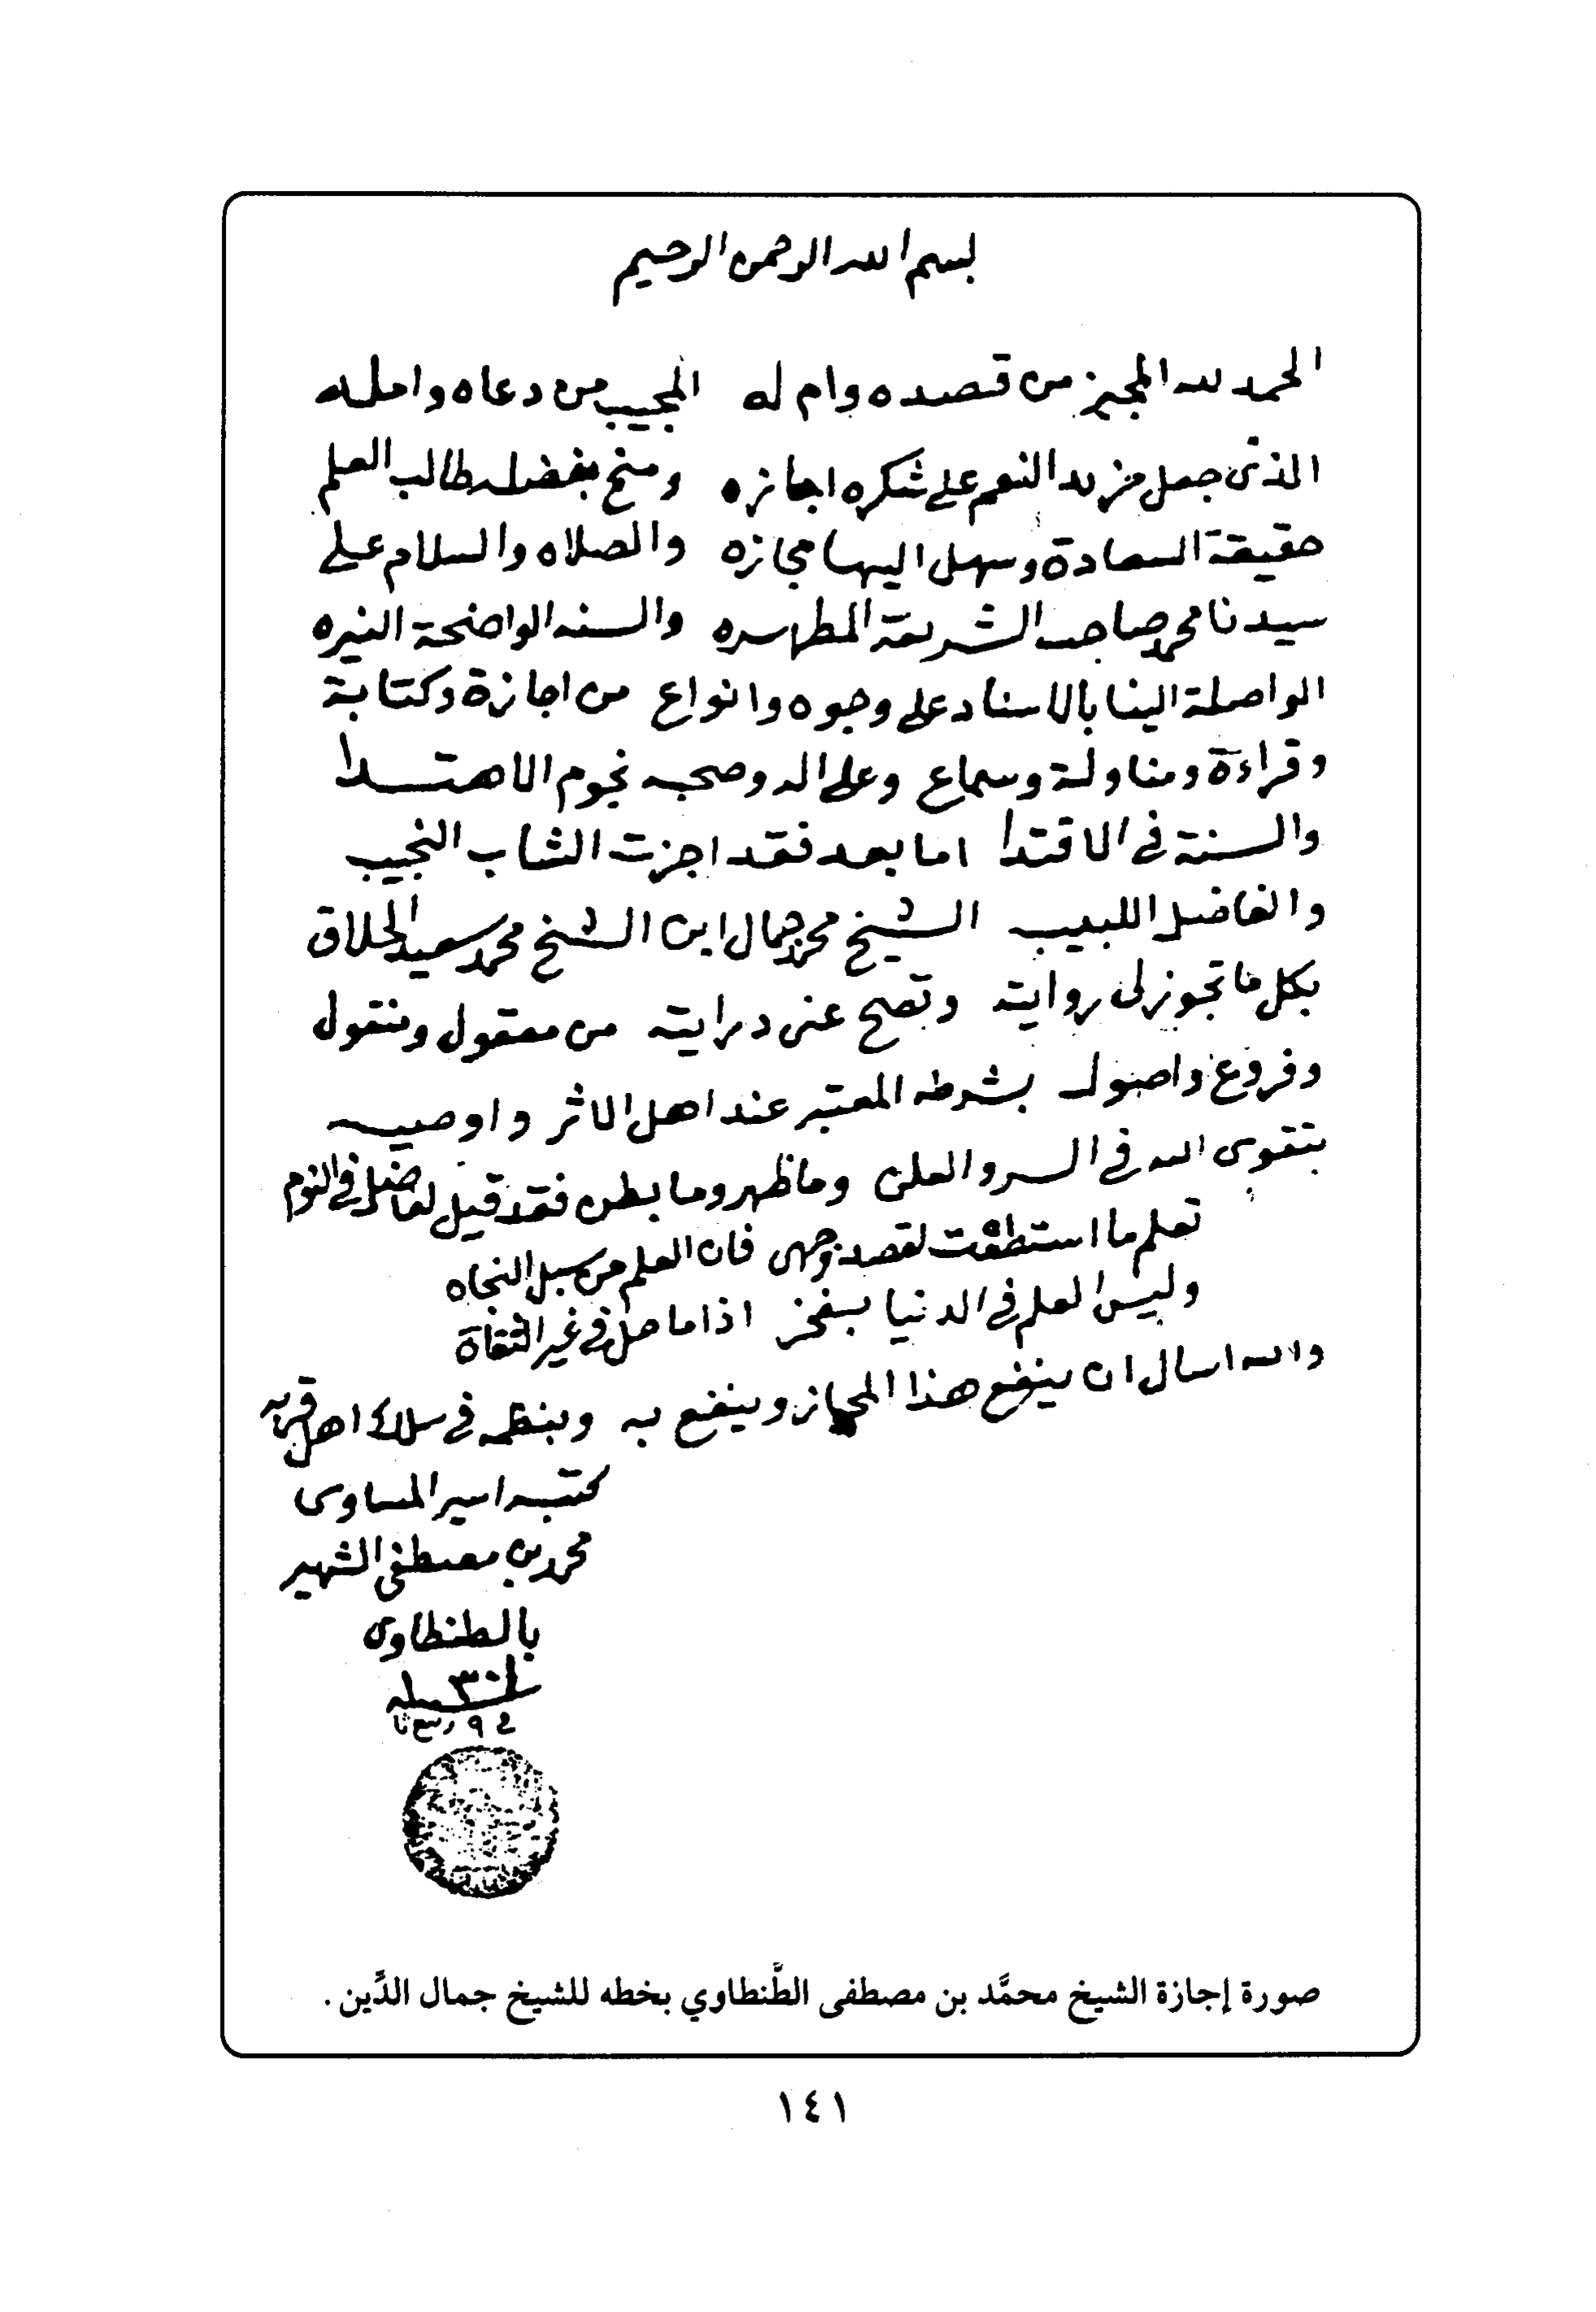 بسم الله الرحمن الرحيم
الحمد لله المجيز من قصده وام له المجيب من دعاه وامله
الذى جعل مزيد النعم على شكره اجازه ومنح بفضله طالب العلم
حقيقة السعادة وسهل اليها مجازه والصلاه والسلام على
سيدنا محمد صاحب الشريعة المطهره والسنه الواضحة النيره
الواصلة الينا بالاسناد على وجوه وانواع من اجازة وكتابة
وقراءة ومناولة وسماع وعلى اله وصحبه نجوم الاهتدا
والسنة فى الاقتدا اما بعد فقد اجزت الشاب النجيب
والفاضل اللبيب الشيخ محمد جمال ابن الشيخ محمد سعيد الحلاق
بكل ما تجوز لى روايته وتصح عنى درايته من معقول ومنقول
وفروع واصول بشرطه المعتبر عند اهل الاثر واوصيه
بتقوى الله فى السر والعلن وما ظهر وما بطن فقد قيل لفاضل فى النوم
تعلم ما استطعت لقصد وجهى فان العلم من سبل النجاه
وليس العلم فى الدنيا بفخر اذا ما حل فى غير الثقاة
والله اسال ان ينفع هذا المجاز وينفع به وينظمه فى سلك اهل قربه
كتبه اسير المساوى
محمد بن مصطفى الشهير
بالطنطاوى
فى ٩ ربيع
صورة إجازة الشيخ محمَّد بن مصطفى الطَّنطاوي بخطه للشيخ جمال الدِّين.
١٤١